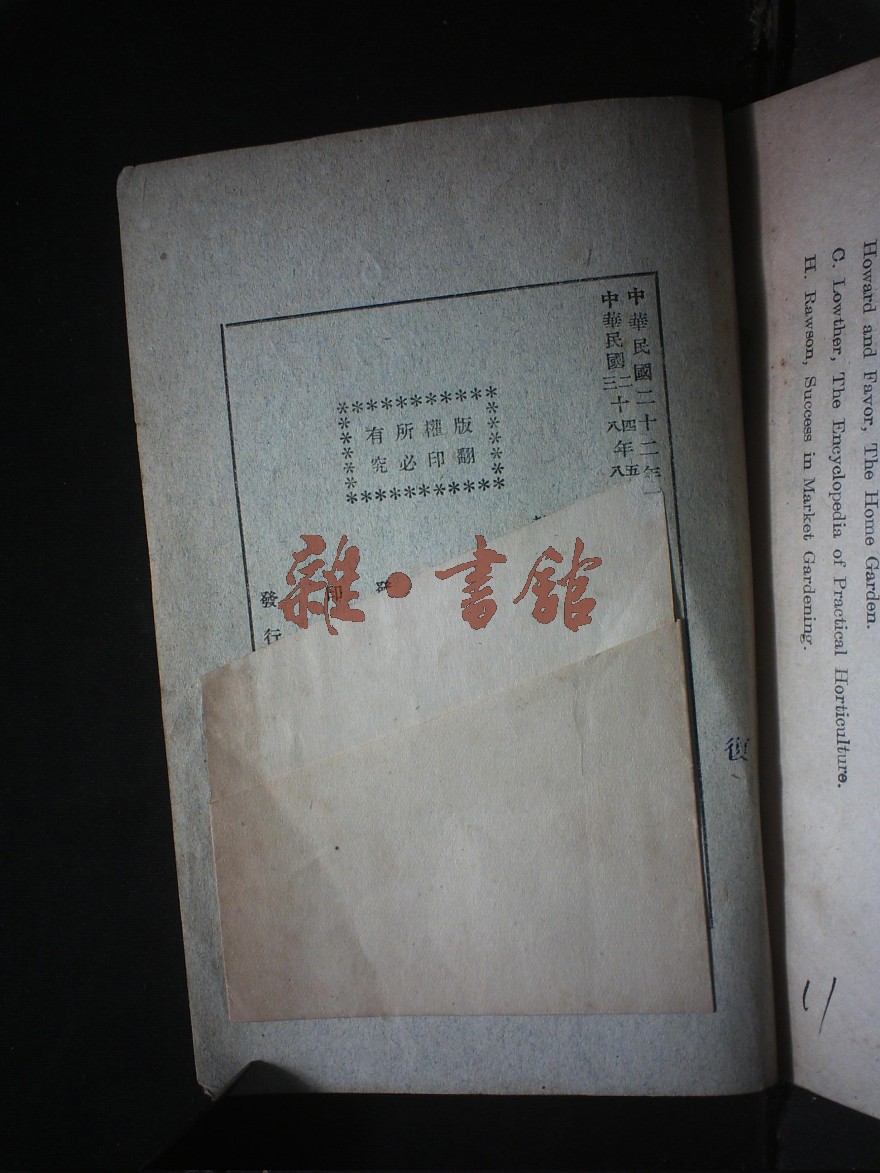 Howard and Favor, The Home Garden.
C. Lowther, The Encyclopedia of Practical Horticulture.
H. Rawson, Success in Market Gardening.
中華民國二十二年一
中華民國二十四年五
三十八年八
版權所有
翻印必究
印
發行
復
雜·書館